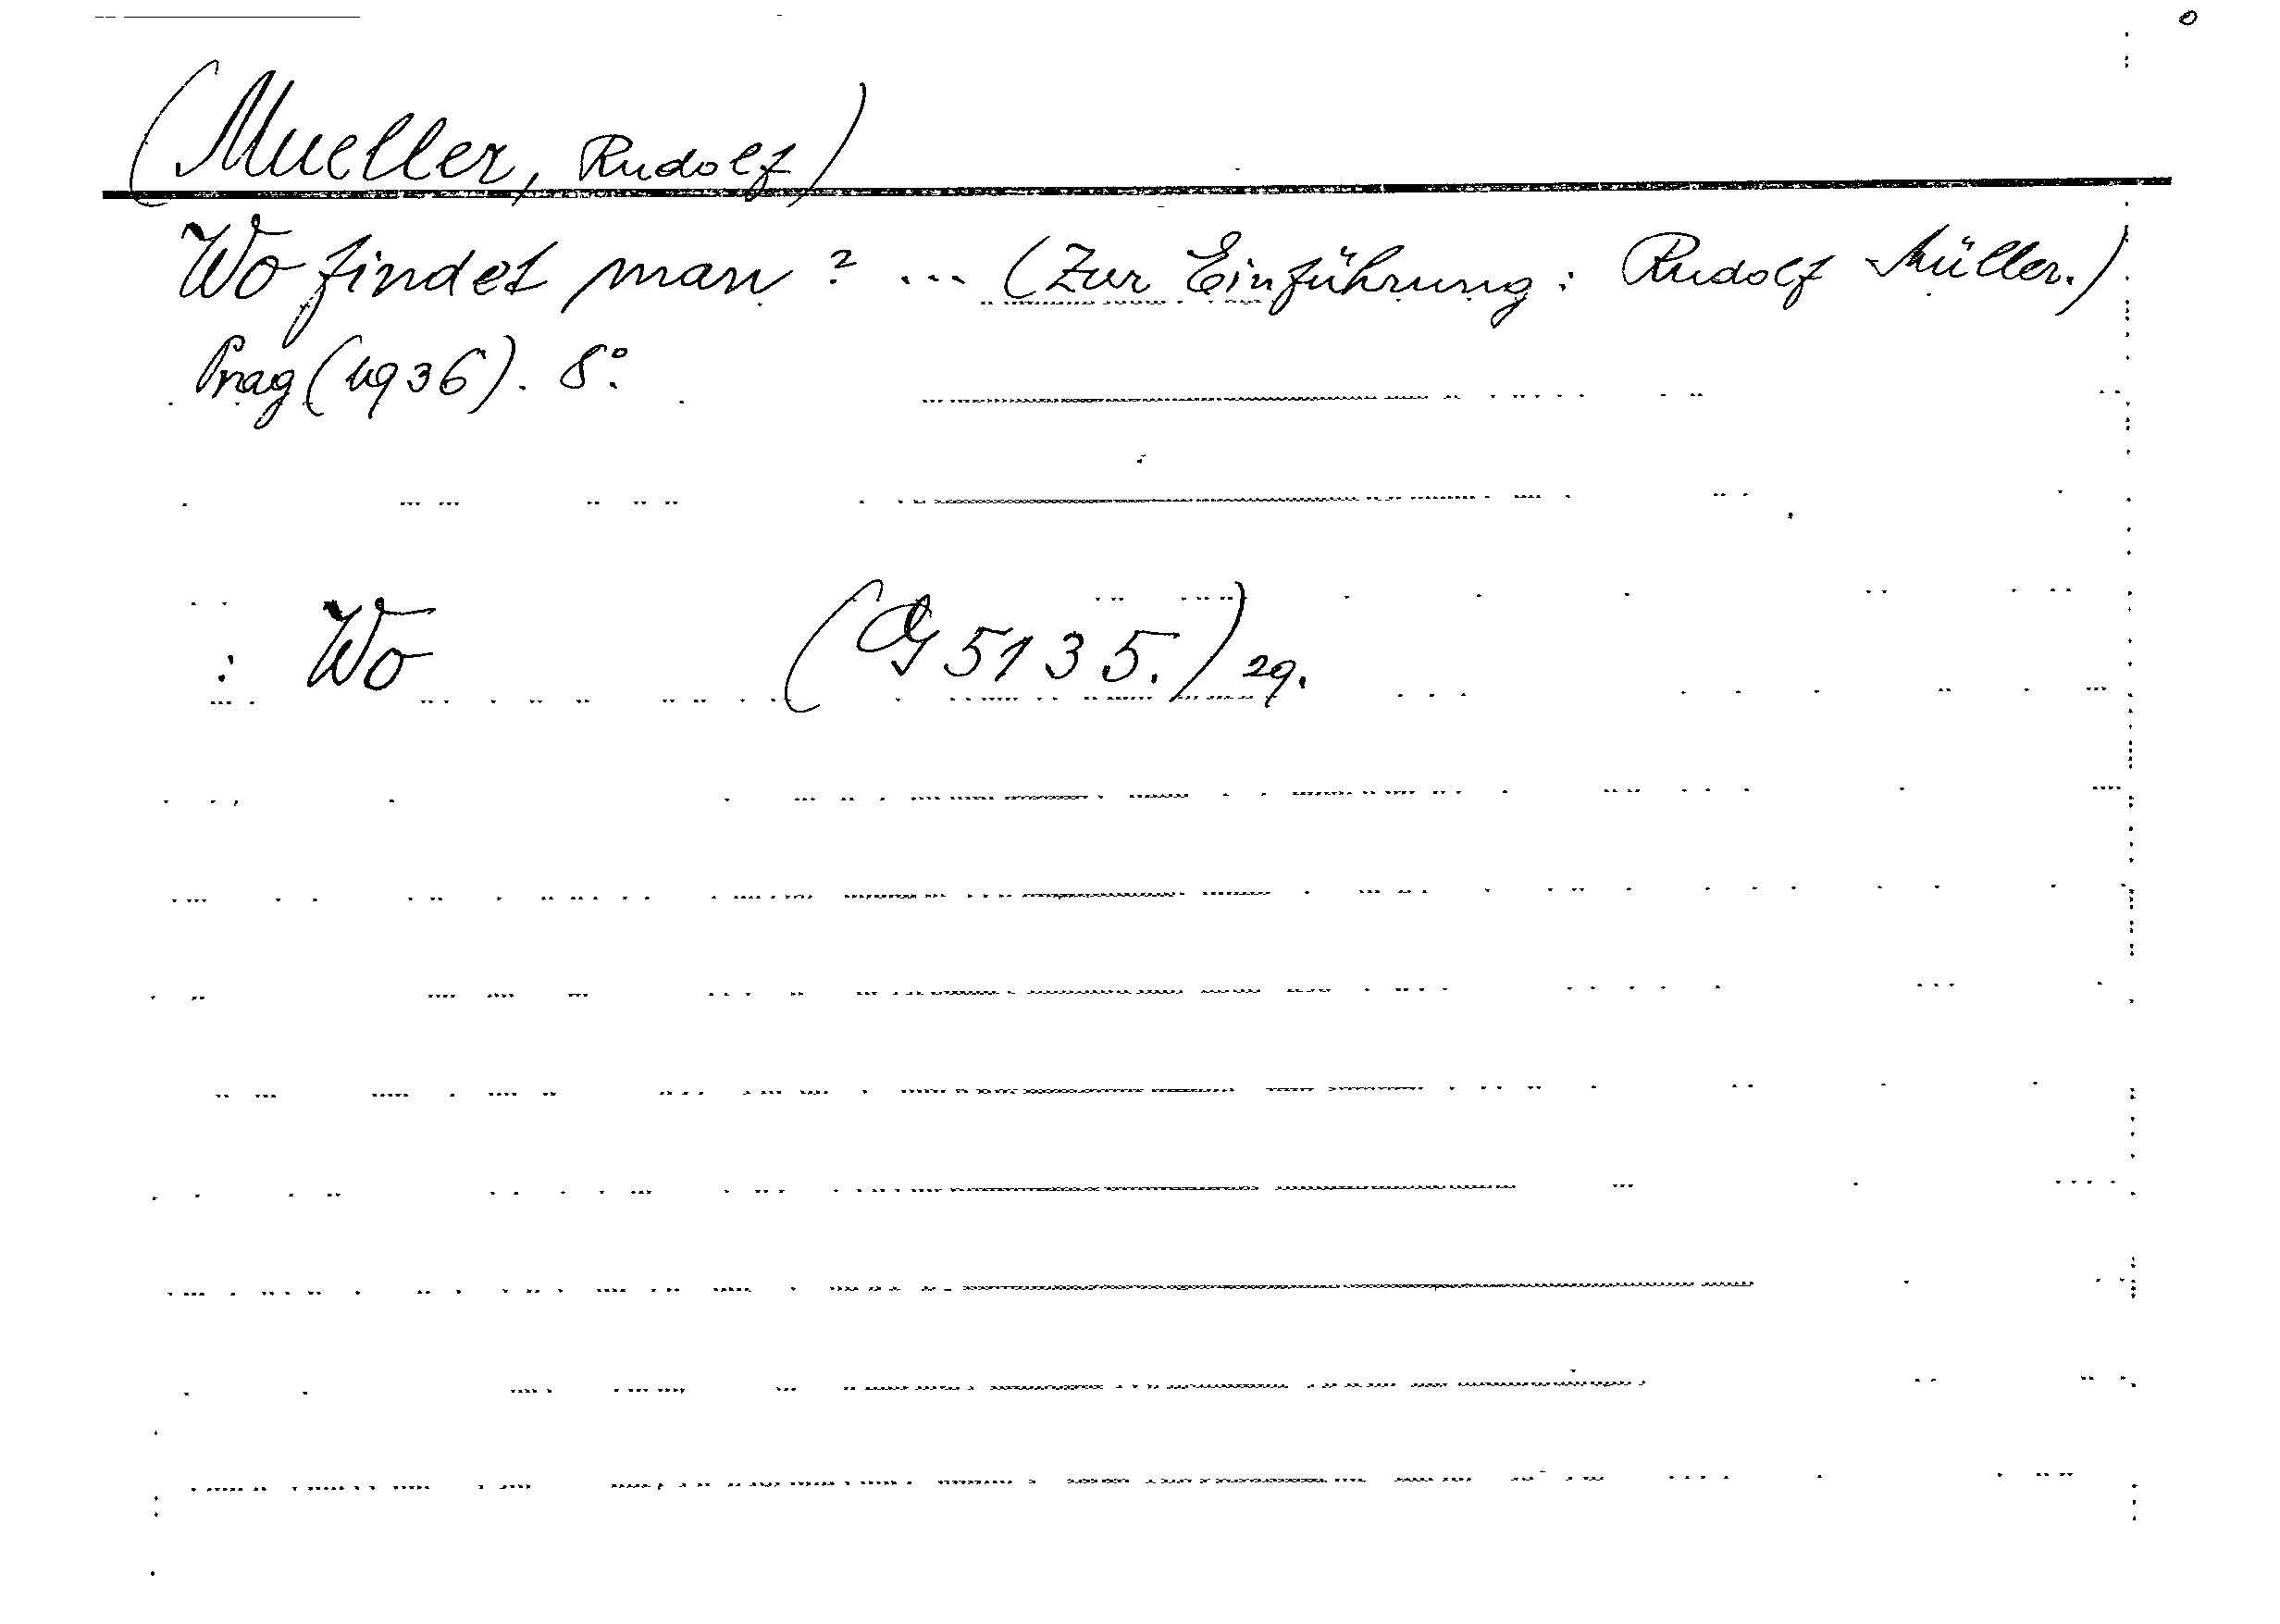 (Mueller, Rudolf)
Wo findet man? ... (Zur Einführung: Rudolf Müller.)
Prag (1936). 8°.
: Wo (G 5135.) 29.